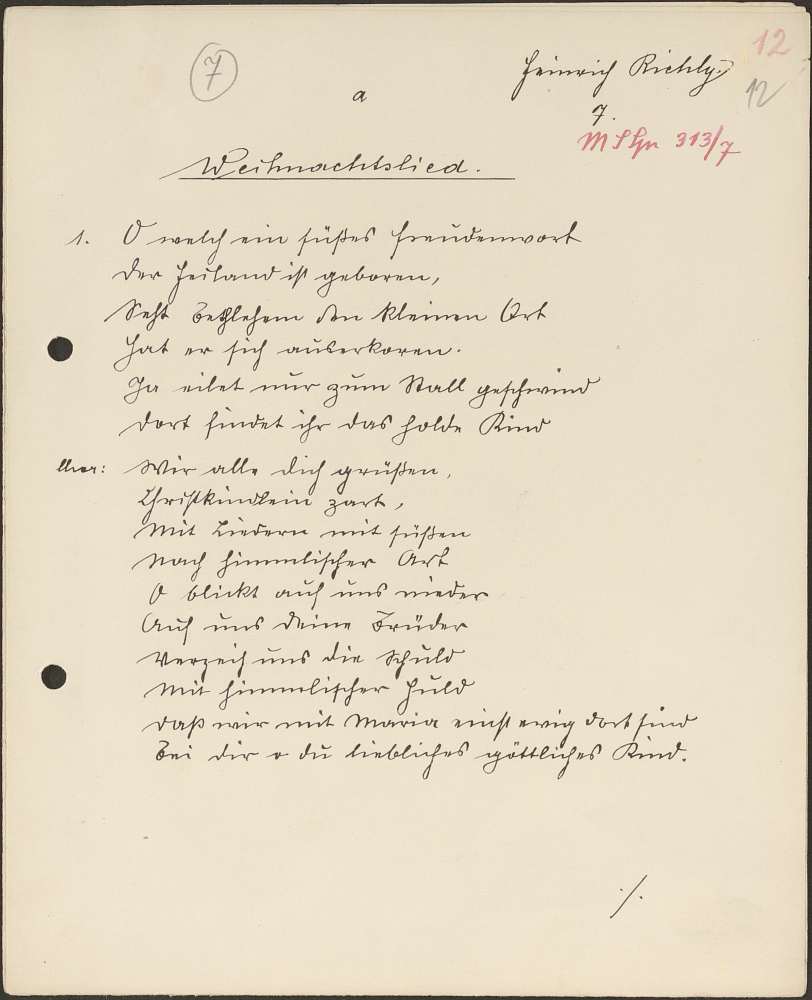 12
7
Heinrich Richly
a
12
7.
Weihnachtslied.
1. O welch ein süßes Freudenwort
Der Heiland ist geboren,
Seht Bethlehem den kleinen Ort
Hat er sich auserkoren.
Ja eilet nur zum Stall geschwind
Dort findet ihr das holde Kind
Wir alle dich grüßen,
Christkindlein zart,
Mit Liedern mit süßen
Nach himmlischer Art
O blickt auf uns nieder
Auf uns deine Brüder
Verzeih uns die Schuld
Mit himmlischer Huld
Daß wir mit Maria einst ewig dort sind
Bei dir o du liebliches göttliches Kind.
./.